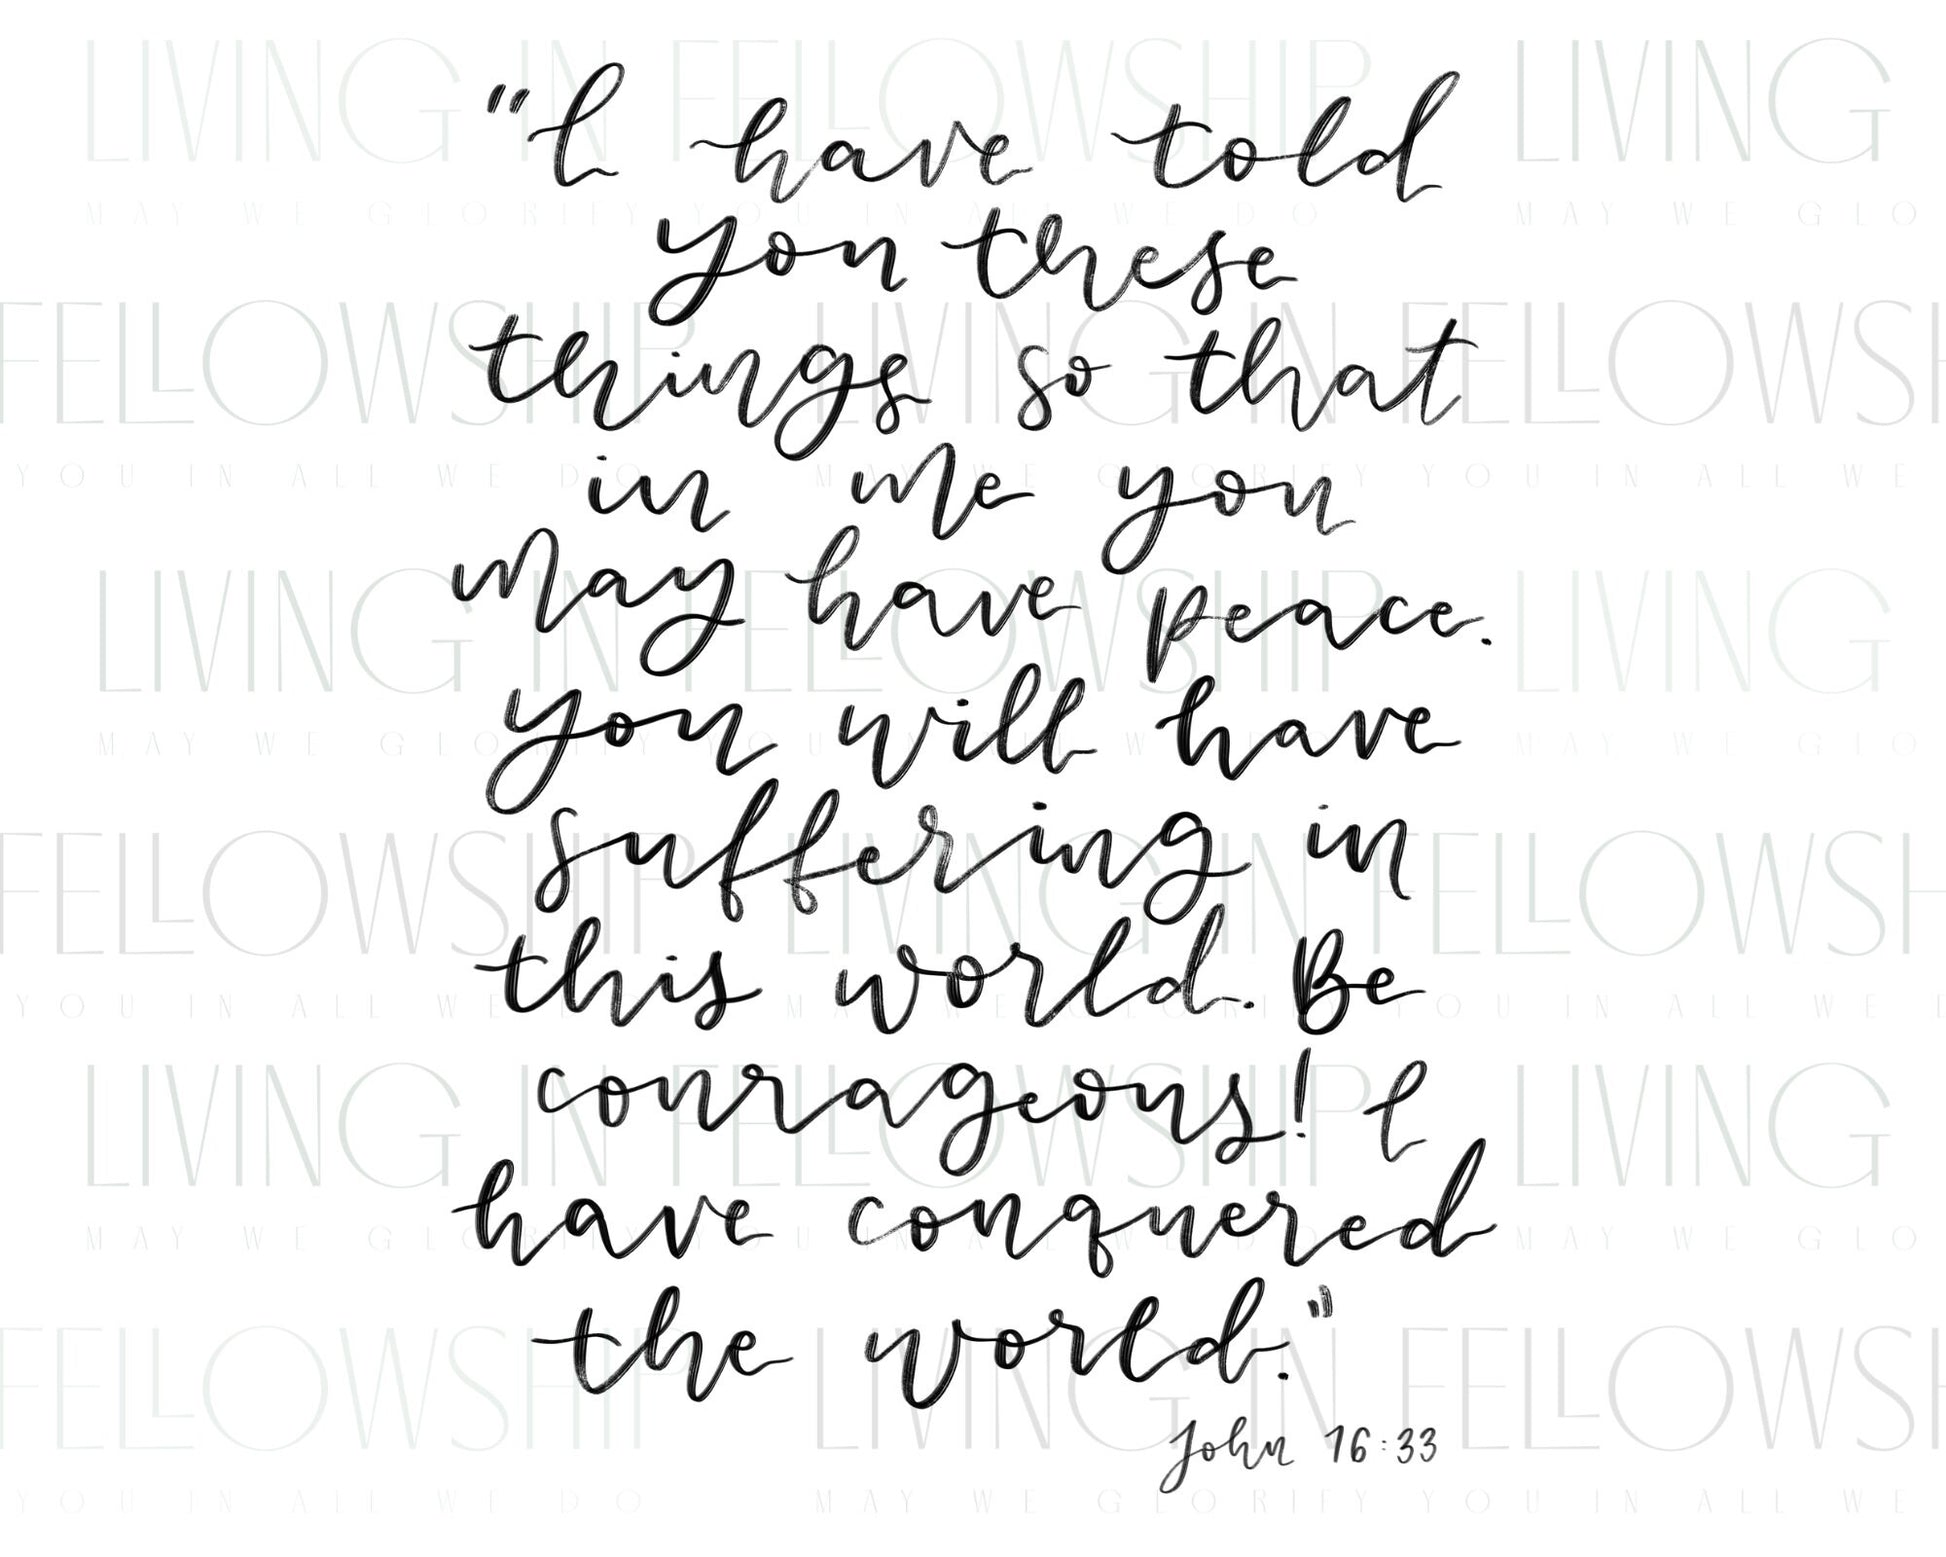 LIVING IN FELLOWSHIP LIVING
MAY WE GLORIFY YOU IN ALL WE DO MAY WE GLO
"I have told
you these
FELLOWSHIP LIVING IN FELLOWSH
things so that
YOU IN ALL WE DO MAY WE GLORIFY YOU IN ALL WE
in me you
LIVING IN FELLOWSHIP LIVING
may have peace.
MAY WE GLORIFY YOU IN ALL WE DO MAY WE GLO
you will have
FELLOWSHIP LIVING IN FELLOWSH
suffering in
YOU IN ALL WE DO MAY WE GLORIFY YOU IN ALL WE
this world. Be
LIVING IN FELLOWSHIP LIVING
courageous! I
MAY WE GLORIFY YOU IN ALL WE DO MAY WE GLO
have conquered
FELLOWSHIP LIVING IN FELLOWSH
the world."
John 16:33
YOU IN ALL WE DO MAY WE GLORIFY YOU IN ALL WE